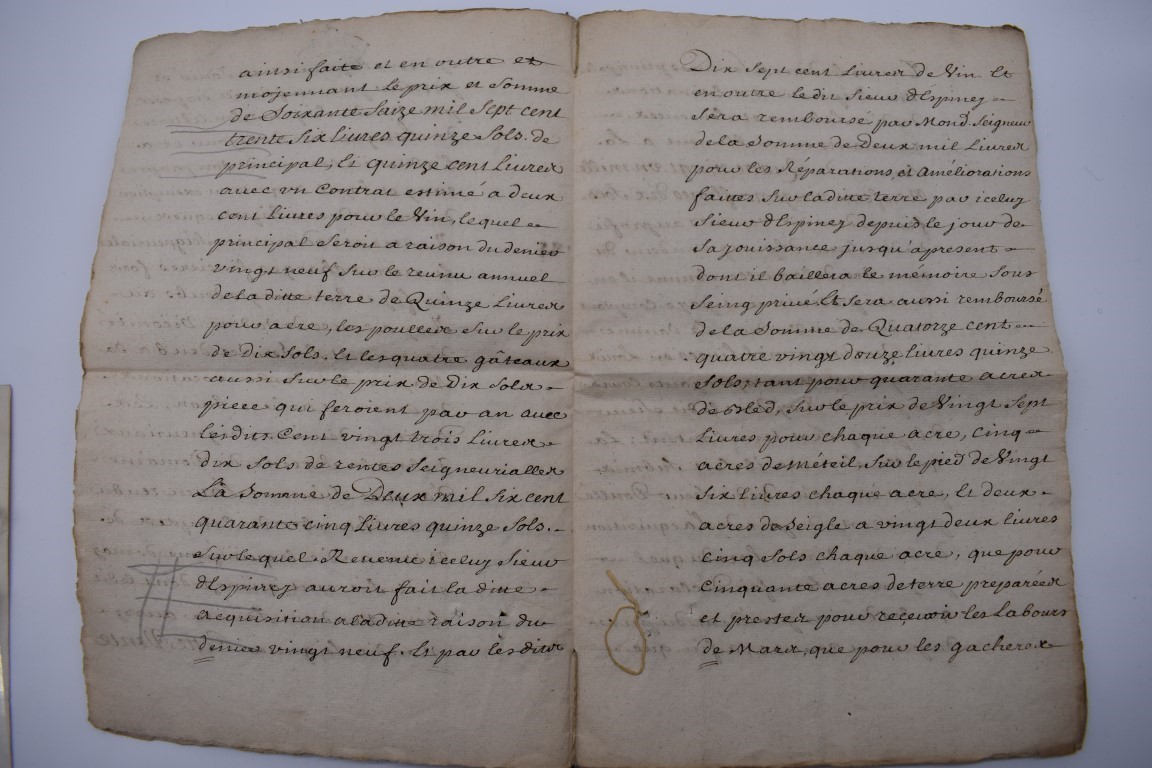 ainsi faite et en outre et
mojennant le prix et somme
de Soixante Saize mil Sept cent
trente Six livres quinze Sols. de
principal, Et quinze cent Livres
avec un Contrat estimé a deux
cent Livres pour le Vin, lequel
principal Seroit a raison du denier
vingt neuf Sur le revenu annuel
de la ditte terre de Quinze Livres
pour acre, les poulles Sur le prix
de Dix Sols. Et les quatre gâteaux
aussi Sur le prix de Dix Sols
piece qui feroient par an avec
lesdits. Cent vingt trois Livres
dix Sols de rentes Seigneurialles
La Somme de Deux mil Six cent
quarante cinq Livres quinze Sols.
Sur lequel Revenu iceluy Sieur
d'Espinez auroit fait la ditte
acquisition a la ditte raison du
denier vingt neuf. Et par les dits
Dix Sept cent Livres de Vin Et
en outre le dit Sieur d'Espinez
Sera remboursé par Mond. Seigneur
de la Somme de Deux mil Livres
pour les Réparations, et Améliorations
faittes Sur la ditte terre par iceluy
Sieur d'Espinez depuis le jour de
Sa jouissance jusqu'apresent
dont il baillera le mémoire Sous
Seing privé Et Sera aussi remboursé
de la Somme de Quatorze cent
quatre vingt douze livres quinze
Sols, tant pour quarante acres
de Bled, Sur le prix de Vingt Sept
Livres pour chaque acre, Cinq
acres de Méteil, Sur le pied de Vingt
Six livres chaque acre, Et deux
acres de Seigle a vingt deux livres
Cinq Sols chaque acre, que pour
Cinquante acres de terre preparées
et prestes pour reçevoir les Labours
de Mars, que pour les gacheres